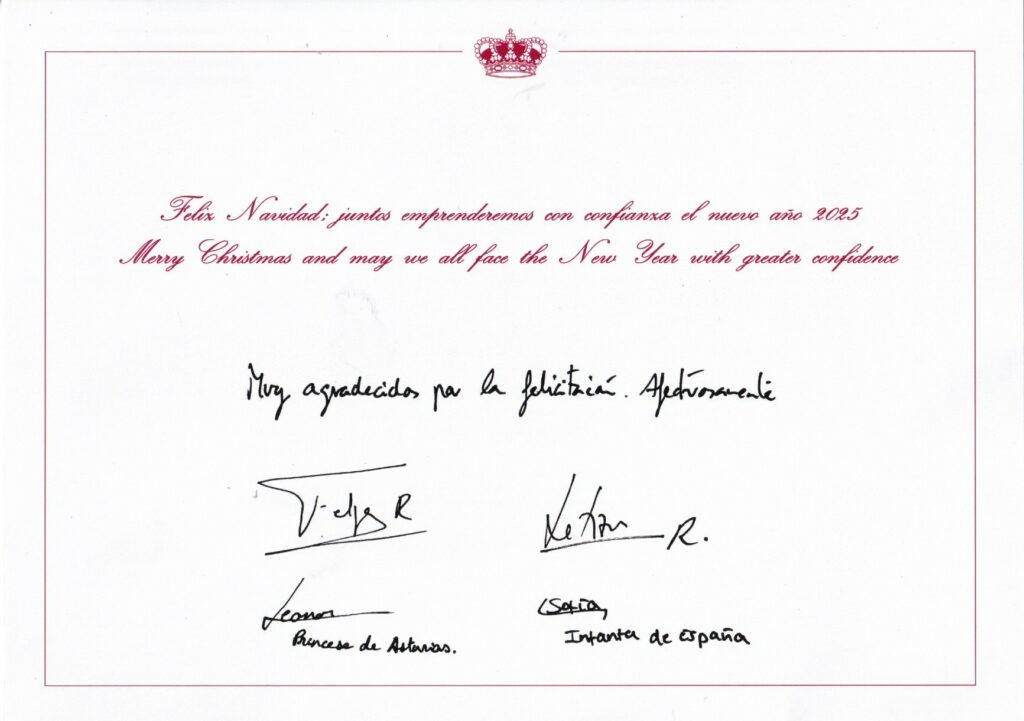 Feliz Navidad; juntos emprenderemos con confianza el nuevo año 2025
Merry Christmas and may we all face the New Year with greater confidence
Muy agradecidos por la felicitación. Afectuosamente
Felipe R
Letizia R.
Leonor
Princesa de Asturias.
Sofía
Infanta de España